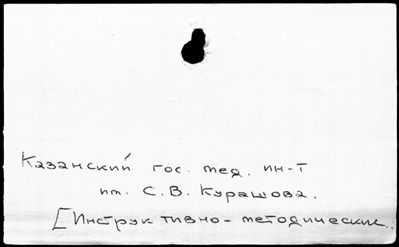 Казанский гос. мед. ин-т
им. С. В. Курашова.
[Инструктивно-методические..